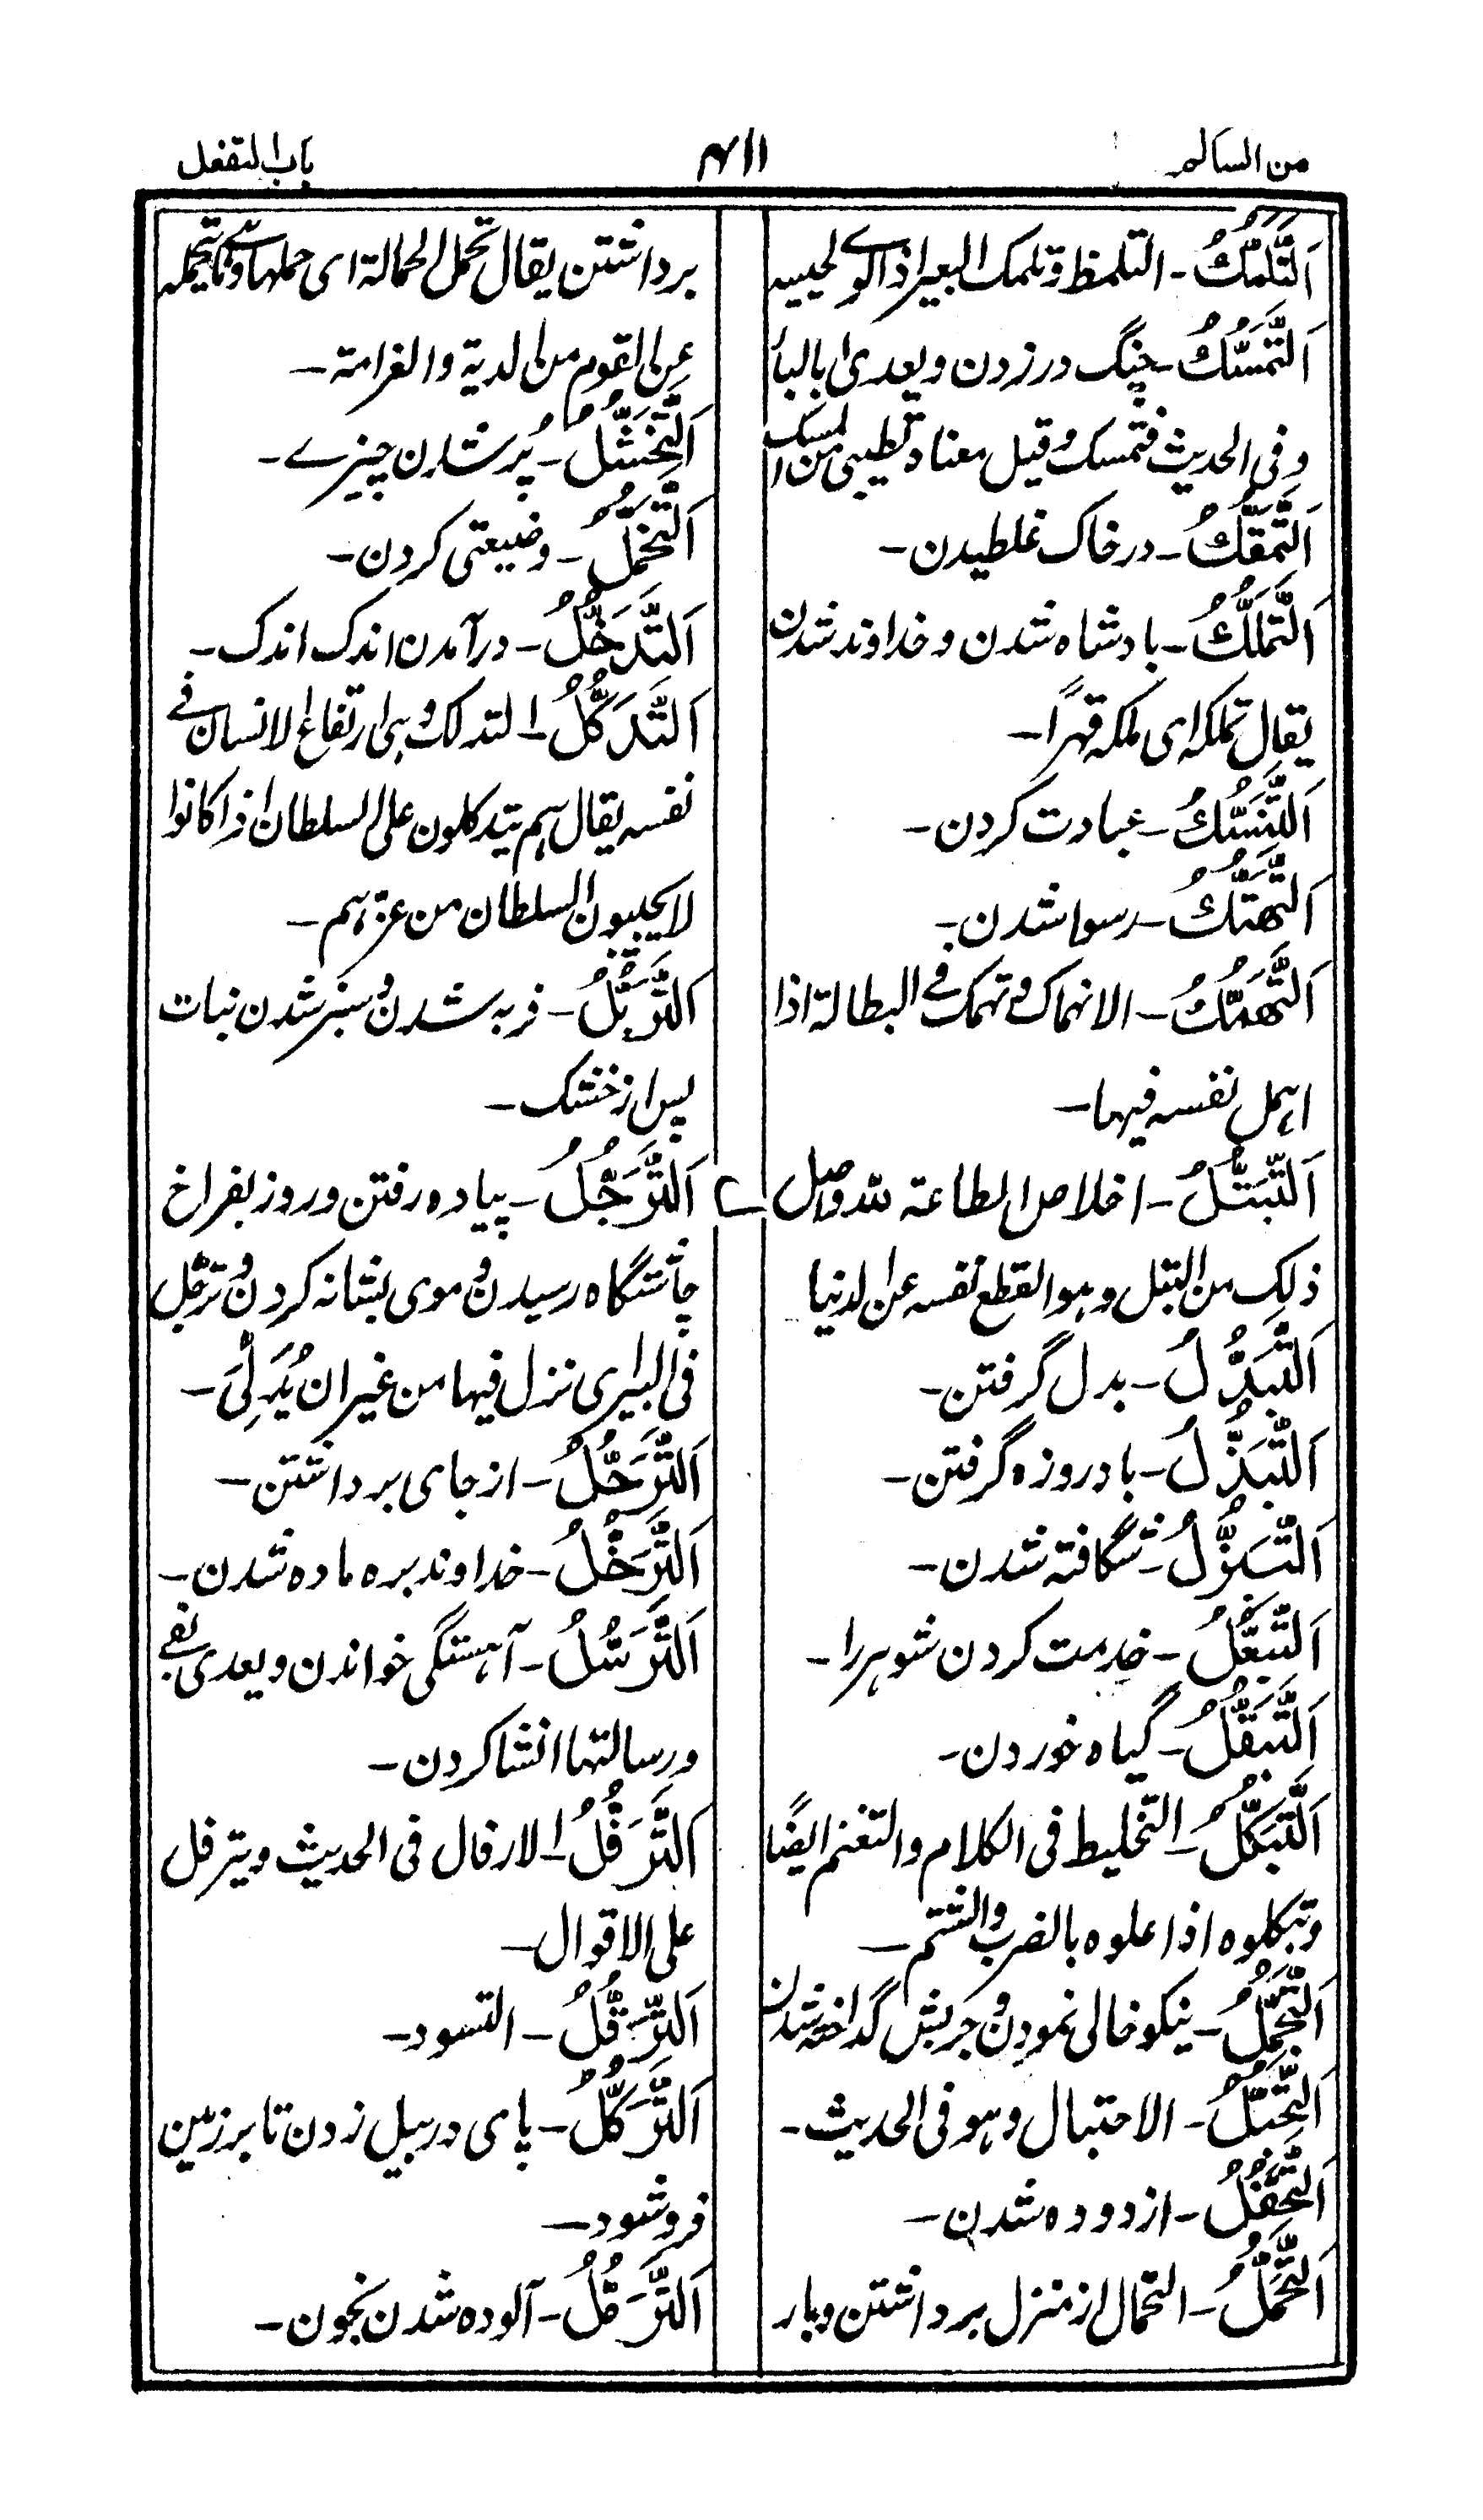 من السالم
۴۱۱
باب التفعل
اَلتَّلَمُّكُ۔ التلمظ وتلمك البعير اذا لوى لحييه
اَلتَّمَسُّكُ۔ چنگ در زدن ويعدى بالبأ
وفي الحديث فتمسك وقيل معناه تطيبى من المسك
اَلتَّمَعُّكُ۔ در خاک غلطيدن۔
اَلتَّمَلُّكُ۔ بادشاه شدن و خداوند شدن
يقال تملكه اى ملكه قهرًا۔
اَلتَّنَسُّكُ۔ عبادت كردن۔
اَلتَّهَتُّكُ۔ رسوا شدن۔
اَلتَّهَمُّكُ۔ الانهماك وتهمك في البطالة اذا
اهمل نفسه فيها۔
اَلتَّبَتُّلُ۔ اخلاص الطاعة لله واصل
ذلك من البتل وهو القطع نفسه عن الدنيا
اَلتَّبَدُّلُ۔ بدل گرفتن۔
اَلتَّبَذُّلُ۔ بادروزه گرفتن۔
اَلتَّبَزُّلُ۔ شگافته شدن۔
اَلتَّبَعُّلُ۔ خدمت كردن شوهر را۔
اَلتَّبَقُّلُ۔ گياه خوردن۔
اَلتَّبَكُّلُ۔ التخليط فى الكلام والتغنم ايضًا
وتبكلوه اذا علوه بالضرب والشتم۔
اَلتَّجَمُّلُ۔ نيكو حالى نمودن و چربش گداخته شدن
اَلتَّحَبُّلُ۔ الاحتبال وهو فى الحديث۔
اَلتَّحَفُّلُ۔ ازدوده شدن۔
اَلتَّحَمُّلُ۔ التحمال از منزل برداشتن و بار
برداشتن يقال تحمل الحمالة اى حملها وهى ما يتحمله
عن القوم من الدية والغرامة۔
اَلتَّخَثُّلُ۔ پُر شدن چيزے۔
اَلتَّخَمُّلُ۔ وضيعتى كردن۔
اَلتَّدَخُّلُ۔ درآمدن اندک اندک۔
اَلتَّدَكُّلُ۔ التدلك وهى ارتفاع الانسان في
نفسه يقال هم يتدكلون على السلطان اذا كانوا
لا يجيبون السلطان من عزهم۔
اَلتَّرَبُّلُ۔ فربه شدن و سبز شدن نبات
پس از خشک۔
اَلتَّرَجُّلُ۔ پياده رفتن و روز بفراخ
چاشتگاه رسيدن و موى بشانه كردن و ترجل
فى البئر اى نزل فيها من غير ان يُدَلّٰى۔
اَلتَّرَحُّلُ۔ از جاى برداشتن۔
اَلتَّرَخُّلُ۔ خداوند بره ماده شدن۔
اَلتَّرَسُّلُ۔ آهستگى خواندن ويعدى بفى
و رسالتها انشا كردن۔
اَلتَّرَفُّلُ۔ الارفال فى الحديث ويترفل
على الاقوال۔
اَلتَّرَفُّلُ۔ التسود۔
اَلتَّرَكُّلُ۔ پاى در بيل زدن تا بر زمين
فرو شود۔
اَلتَّرَمُّلُ۔ آلوده شدن بخون۔